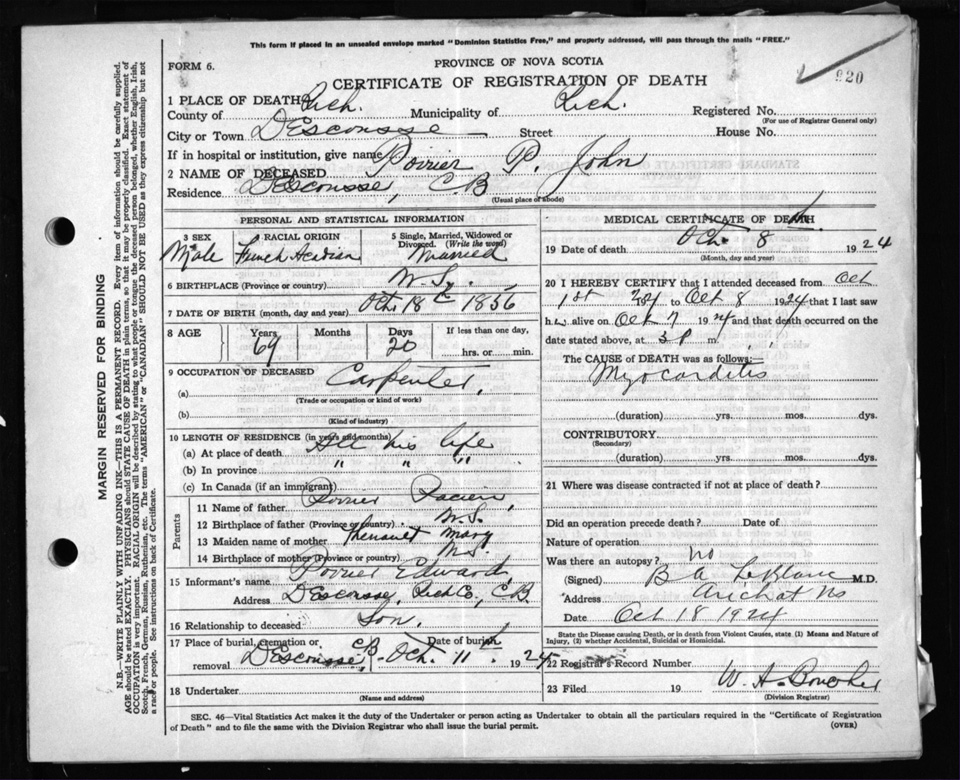 This form if placed in an unsealed envelope marked "Dominion Statistics Free," and properly addressed, will pass through the mails "FREE."
PROVINCE OF NOVA SCOTIA
FORM 6.
CERTIFICATE OF REGISTRATION OF DEATH
820
MARGIN RESERVED FOR BINDING
N.B.—WRITE PLAINLY WITH UNFADING INK—THIS IS A PERMANENT RECORD. Every item of information should be carefully supplied.
AGE should be stated EXACTLY. PHYSICIANS should STATE CAUSE OF DEATH in plain terms, so that it may be properly classified. Exact statement of
OCCUPATION is very important. RACIAL ORIGIN will be described by stating to what people or tongue the deceased person belonged, whether English, Irish,
Scotch, French, German, Russian, Ruthenian, etc. The terms "AMERICAN" or "CANADIAN" SHOULD NOT BE USED as they express citizenship but not
a race or people. See instructions on back of Certificate.
1 PLACE OF DEATH
County of Rich. Municipality of Rich. Registered No.
(For use of Registrar General only)
City or Town D'Escousse Street House No.
If in hospital or institution, give name
2 NAME OF DECEASED Poirier P. John
Residence D'Escousse, C.B
(Usual place of abode)
PERSONAL AND STATISTICAL INFORMATION
3 SEX RACIAL ORIGIN 5 Single, Married, Widowed or Divorced. (Write the word)
Male French Acadian Married
6 BIRTHPLACE (Province or country) N.S.
7 DATE OF BIRTH (month, day and year) Oct. 18th 1856
8 AGE Years Months Days If less than one day,
69 20 hrs. or min.
9 OCCUPATION OF DECEASED
(a) Carpenter,
(Trade or occupation or kind of work)
(b)
(Kind of industry)
10 LENGTH OF RESIDENCE (in years and months)
(a) At place of death All his life
(b) In province " " "
(c) In Canada (if an immigrant)
Parents
11 Name of father Poirier
12 Birthplace of father (Province or country) N.S.
13 Maiden name of mother Mary
14 Birthplace of mother (Province or country) N.S.
15 Informant's name Poirier Edward,
Address D'Escousse, Rich Co., C.B.
16 Relationship to deceased Son.
17 Place of burial, cremation or removal D'Escousse, C.B Date of burial Oct. 11th 1924
18 Undertaker
(Name and address)
MEDICAL CERTIFICATE OF DEATH
19 Date of death Oct. 8th 1924
(Month, day and year)
20 I HEREBY CERTIFY that I attended deceased from Oct
1st 1924 to Oct 8 1924 that I last saw
h alive on Oct 7 1924 and that death occurred on
date stated above, at 3 P m.
The CAUSE of DEATH was as follows:
Myocarditis
(duration) yrs. mos. dys.
CONTRIBUTORY
(Secondary)
(duration) yrs. mos. dys.
21 Where was disease contracted if not at place of death?
Did an operation precede death? Date of
Nature of operation
Was there an autopsy? no
(Signed) B A LeBlanc M.D.
Address Arichat NS
Oct 18 1924
State the Disease causing Death, or in death from Violent Causes, state (1) Means and Nature of
Injury, (2) whether Accidental, Suicidal or Homicidal.
22 Registrar's Record Number
23 Filed 19 W. A.
(Division Registrar)
SEC. 46—Vital Statistics Act makes it the duty of the Undertaker or person acting as Undertaker to obtain all the particulars required in the "Certificate of Registration
of Death" and to file the same with the Division Registrar who shall issue the burial permit.
(OVER)